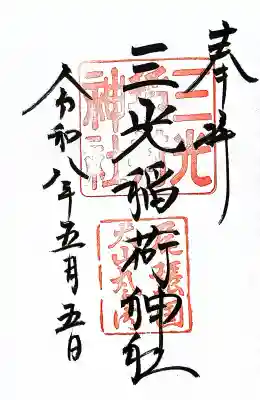 奉拝
三光稲荷神社
令和八年五月五日
三光稲荷神社